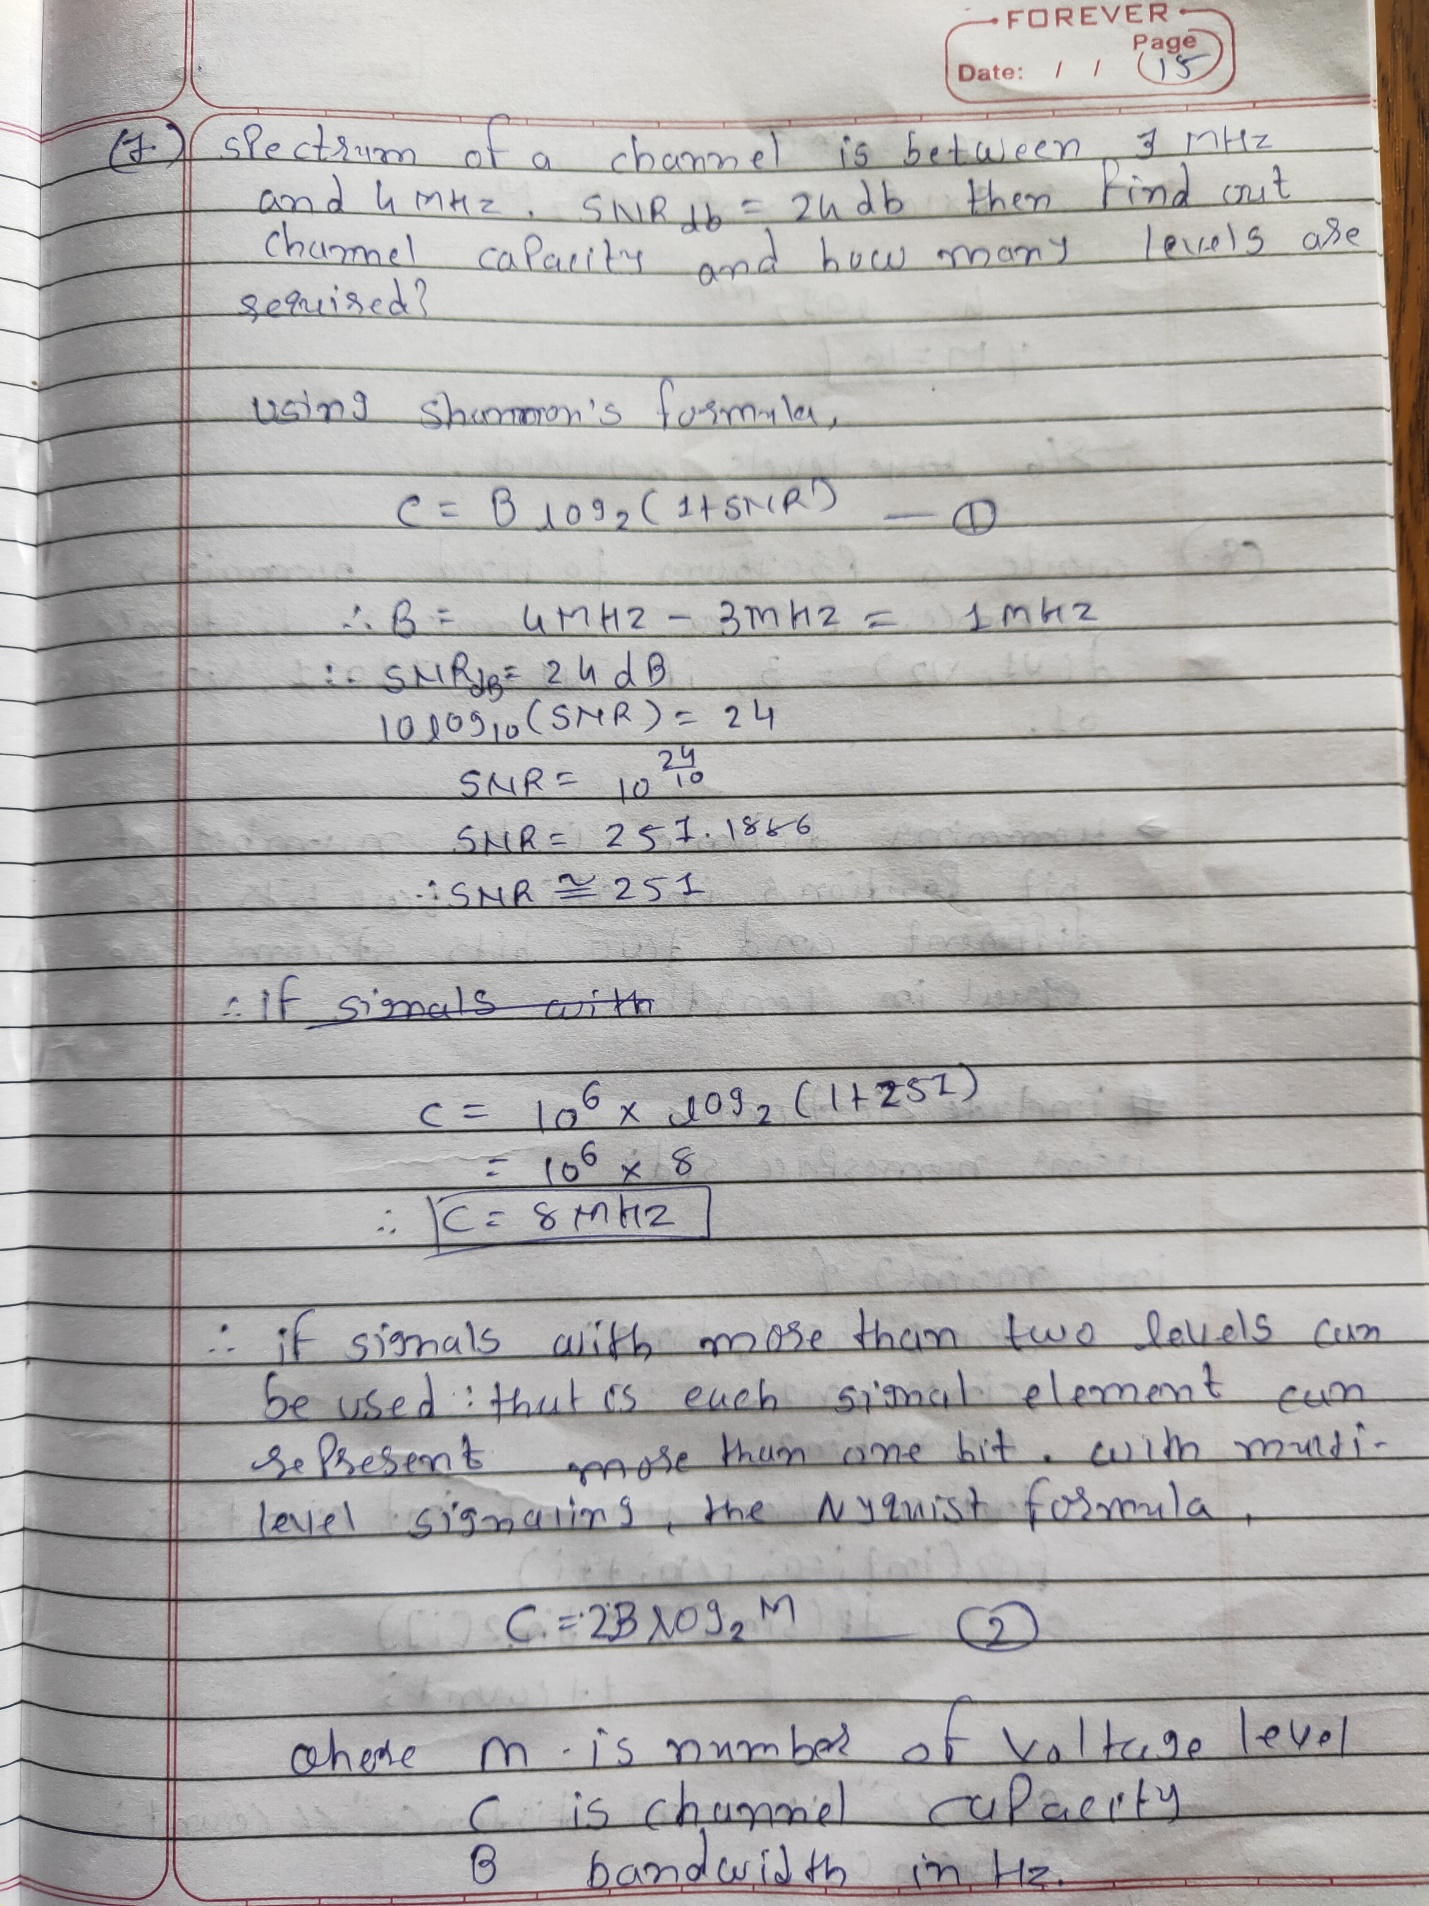 FOREVER
Page
Date: / / 15
(7.) spectrum of a channel is between 3 MHz
and 4 MHz. SNR db = 24 db then find out
channel capacity and how many levels are
required?
using shannon's formula,
C = B log₂ (1+SNR) — ①
∴ B = 4MHz - 3MHz = 1MHz
∴ SNR dB = 24 dB
10 log₁₀ (SNR) = 24
SNR = 10^(24/10)
SNR = 251.1886
∴ SNR ≅ 251
∴ if signals with
C = 10⁶ × log₂ (1+251)
= 10⁶ × 8
∴ C = 8 MHz
∴ if signals with more than two levels can
be used : that is each signal element can
represent more than one bit. with multi-
level signaling, the Nyquist formula,
C = 2B log₂ M — ②
where m is number of voltage level
C is channel capacity
B bandwidth in Hz.